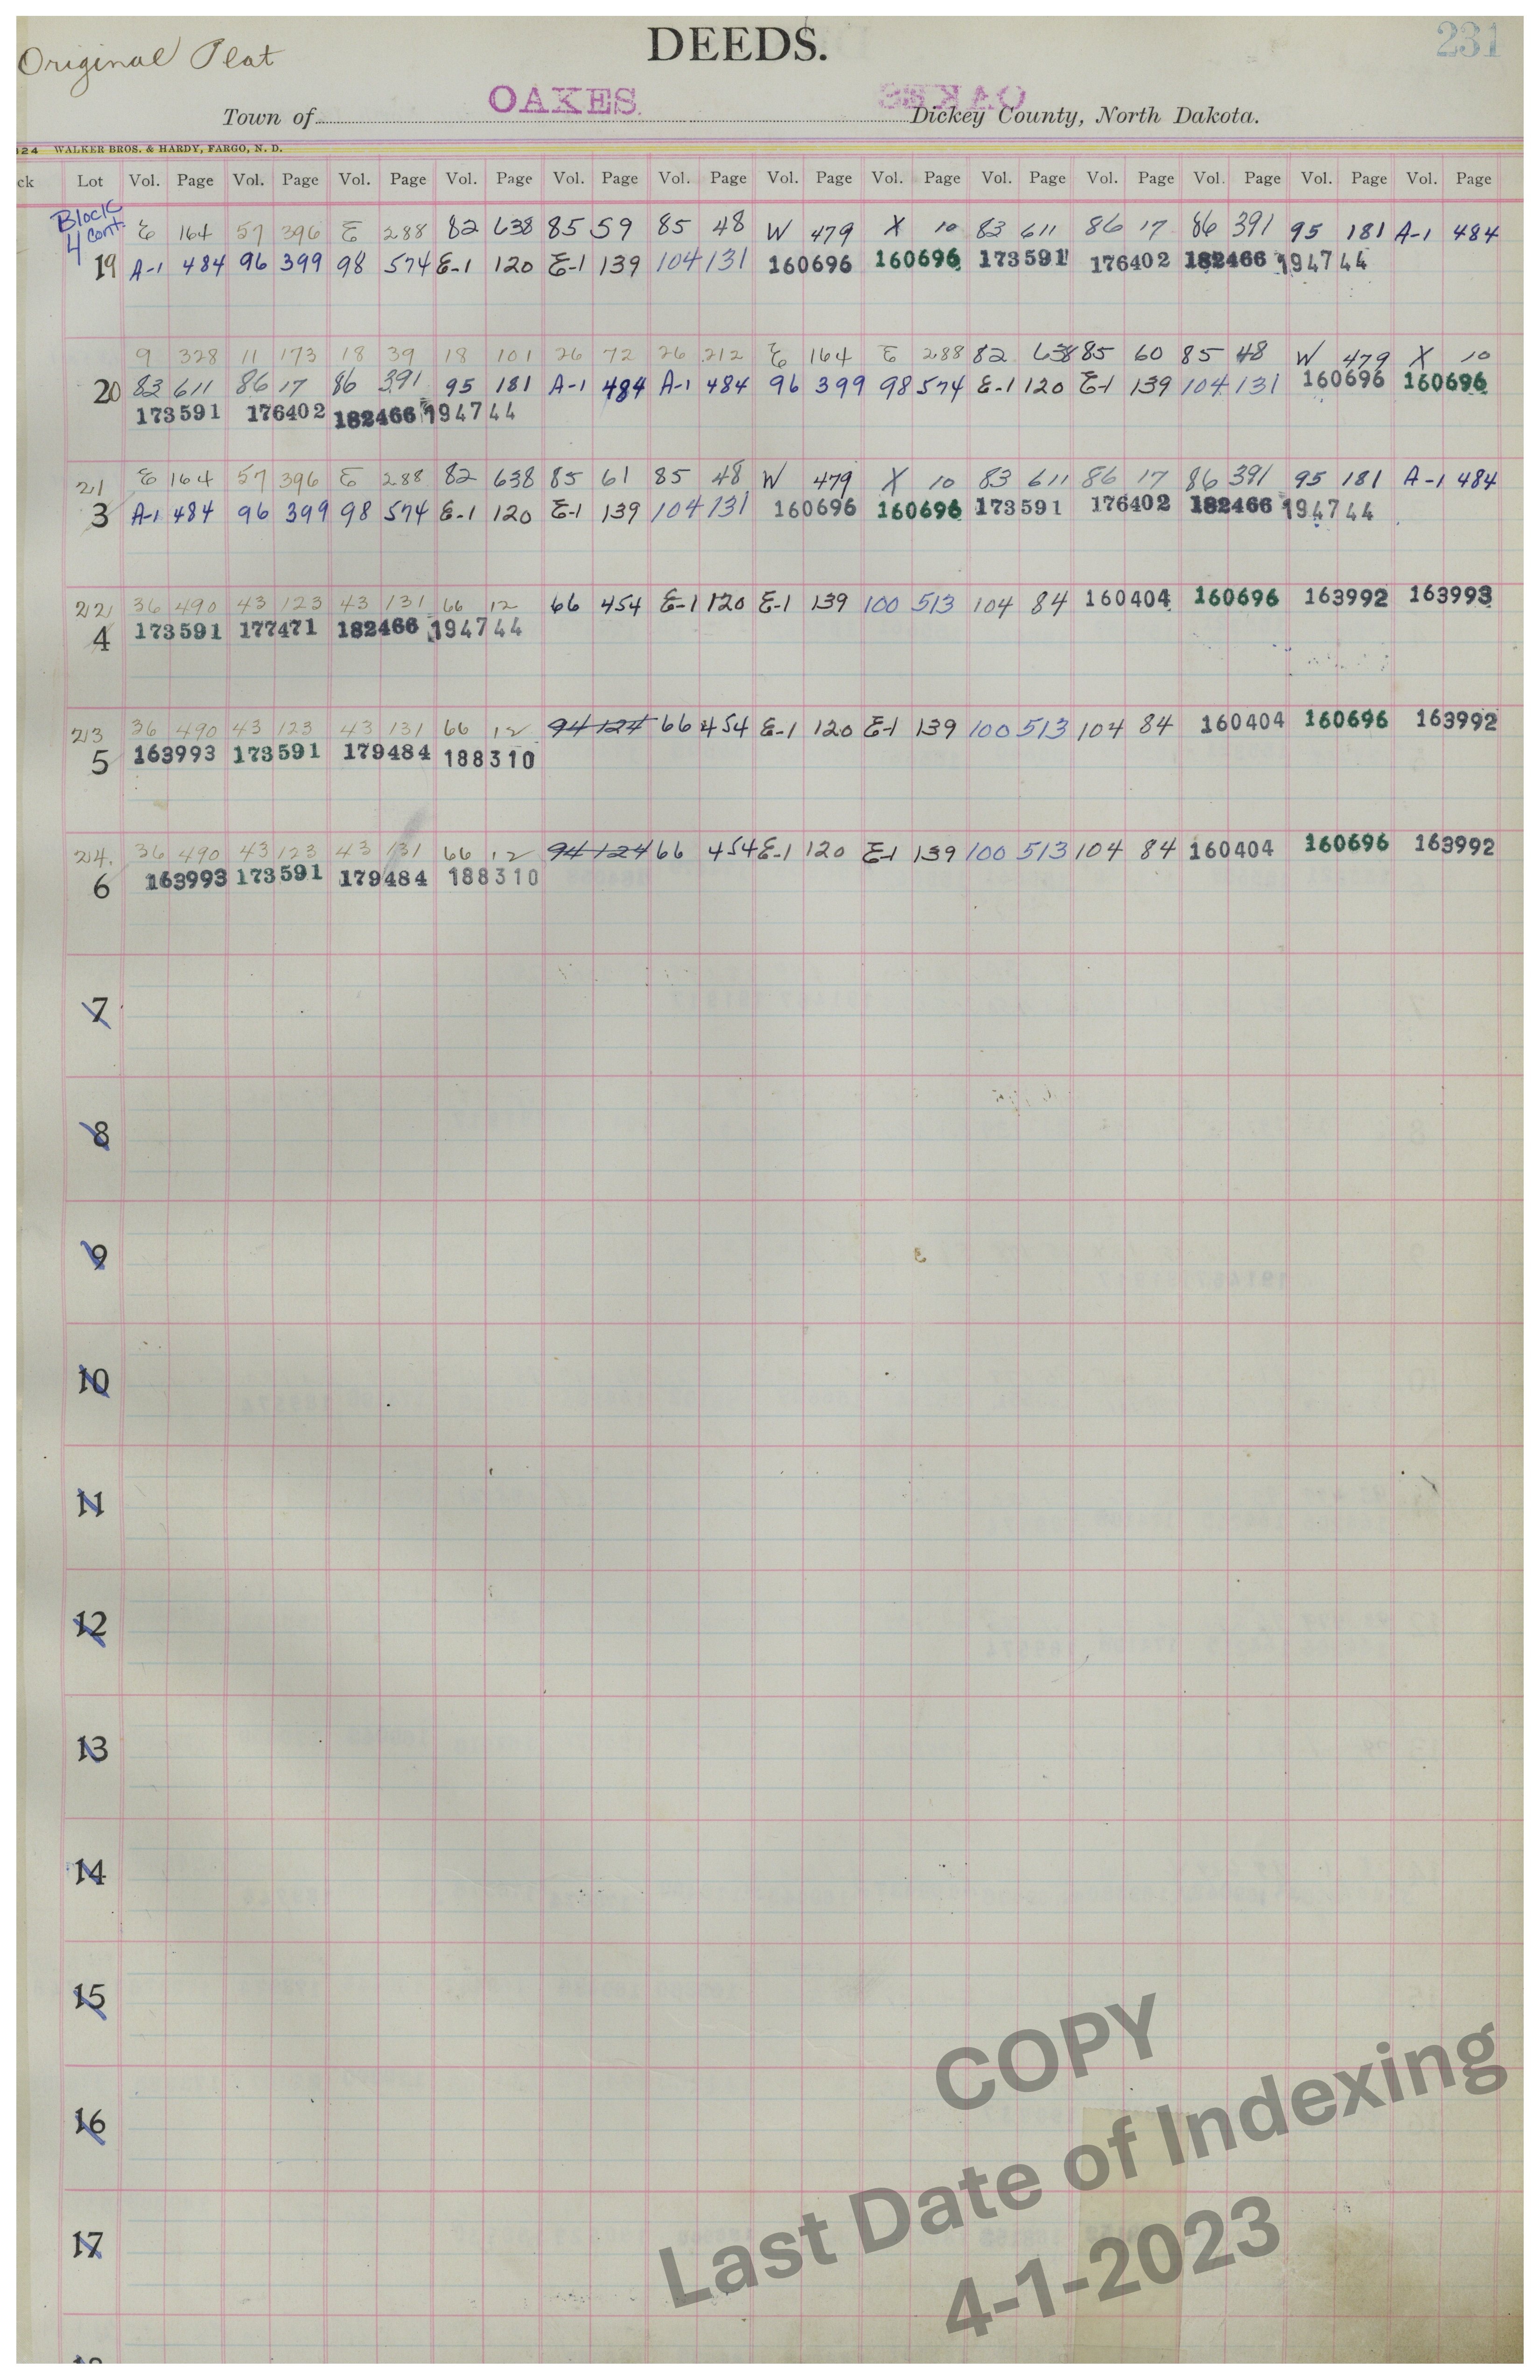 Original Plat
DEEDS.
231
OAKES
Town of Dickey County, North Dakota.
124 WALKER BROS. & HARDY, FARGO, N. D.
ck Lot Vol. Page Vol. Page Vol. Page Vol. Page Vol. Page Vol. Page Vol. Page Vol. Page Vol. Page Vol. Page Vol. Page Vol. Page Vol. Page
Block 4 Cont.
E 164 57 396 E 288 82 638 85 59 85 48 W 479 X 10 83 611 86 17 86 391 95 181 A-1 484
19 A-1 484 96 399 98 574 E-1 120 E-1 139 104 131 160696 160696 173591 176402 182466 194744
9 328 11 173 18 39 18 101 26 72 26 212 E 164 E 288 82 638 85 60 85 48 W 479 X 10
20 83 611 86 17 86 391 95 181 A-1 484 A-1 484 96 399 98 574 E-1 120 E-1 139 104 131 160696 160696
173591 176402 182466 194744
21 E 164 57 396 E 288 82 638 85 61 85 48 W 479 X 10 83 611 86 17 86 391 95 181 A-1 484
3 A-1 484 96 399 98 574 E-1 120 E-1 139 104 131 160696 160696 173591 176402 182466 194744
22 36 490 43 123 43 131 66 12 66 454 E-1 120 E-1 139 100 513 104 84 160404 160696 163992 163993
4 173591 177471 182466 194744
23 36 490 43 123 43 131 66 12 94 124 66 454 E-1 120 E-1 139 100 513 104 84 160404 160696 163992
5 163993 173591 179484 188310
24 36 490 43 123 43 131 66 12 94 124 66 454 E-1 120 E-1 139 100 513 104 84 160404 160696 163992
6 163993 173591 179484 188310
7
8
9
10
11
12
13
14
15
16
17
COPY
Last Date of Indexing
4-1-2023